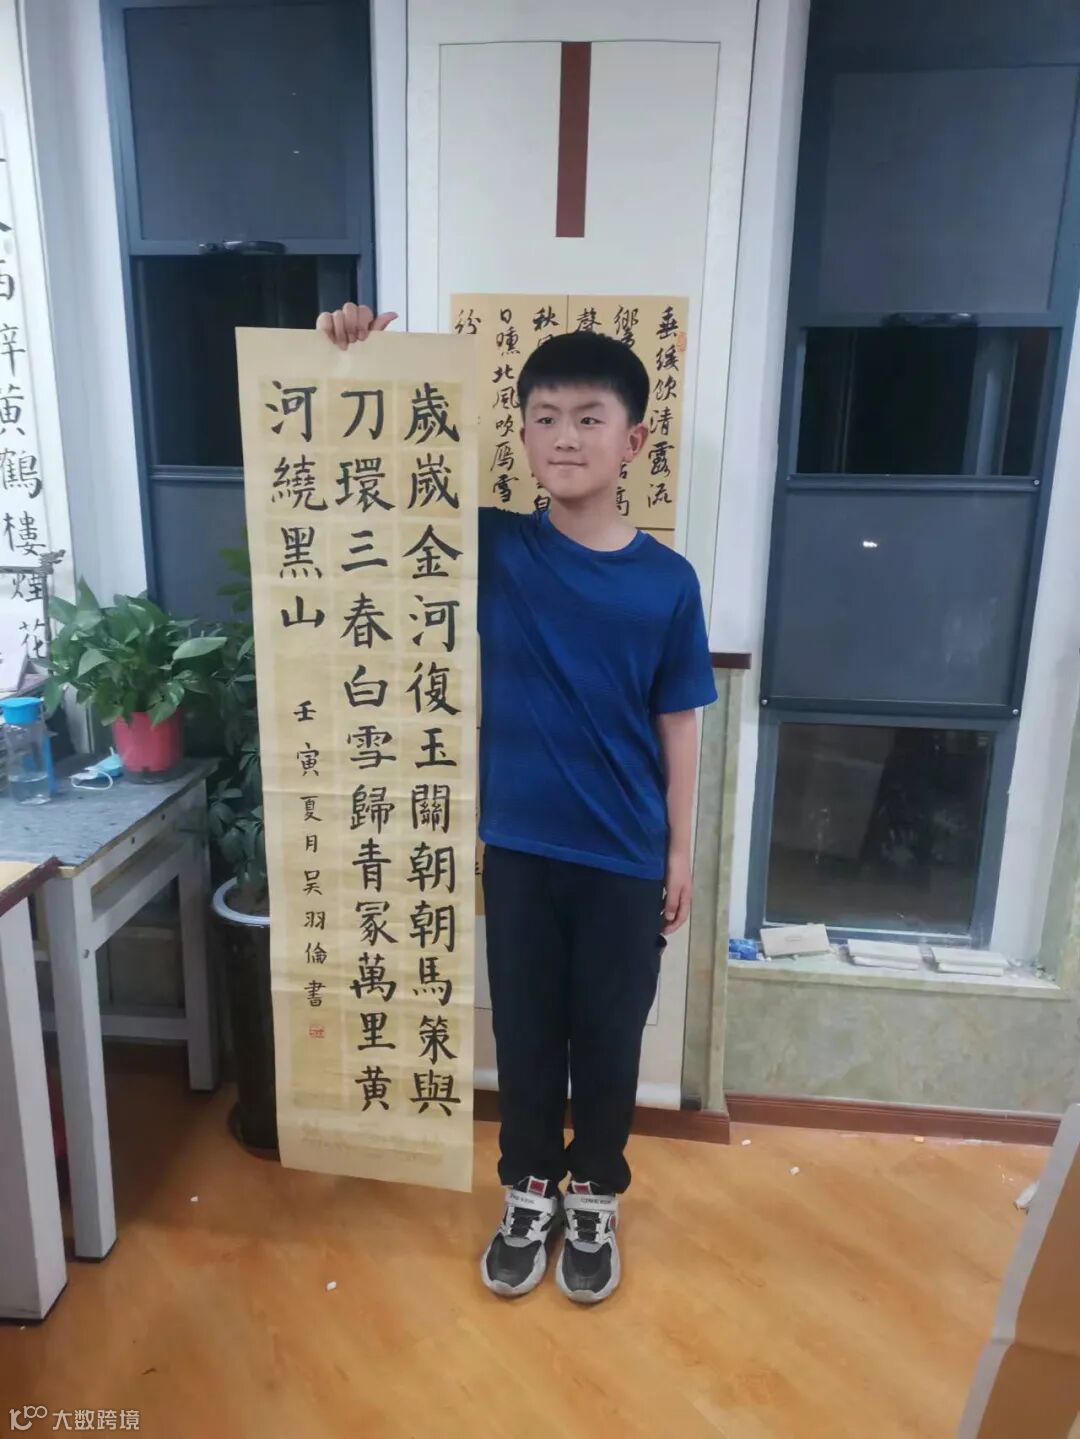 歲歲金河復玉關朝朝馬策與
刀環三春白雪歸青冢萬里黃
河繞黑山
壬寅夏月吴羽倫書
垂緌飲清露流
響
聲
秋風
日曛北風吹雁雪
紛
西辭黃鶴樓煙花
大数跨境